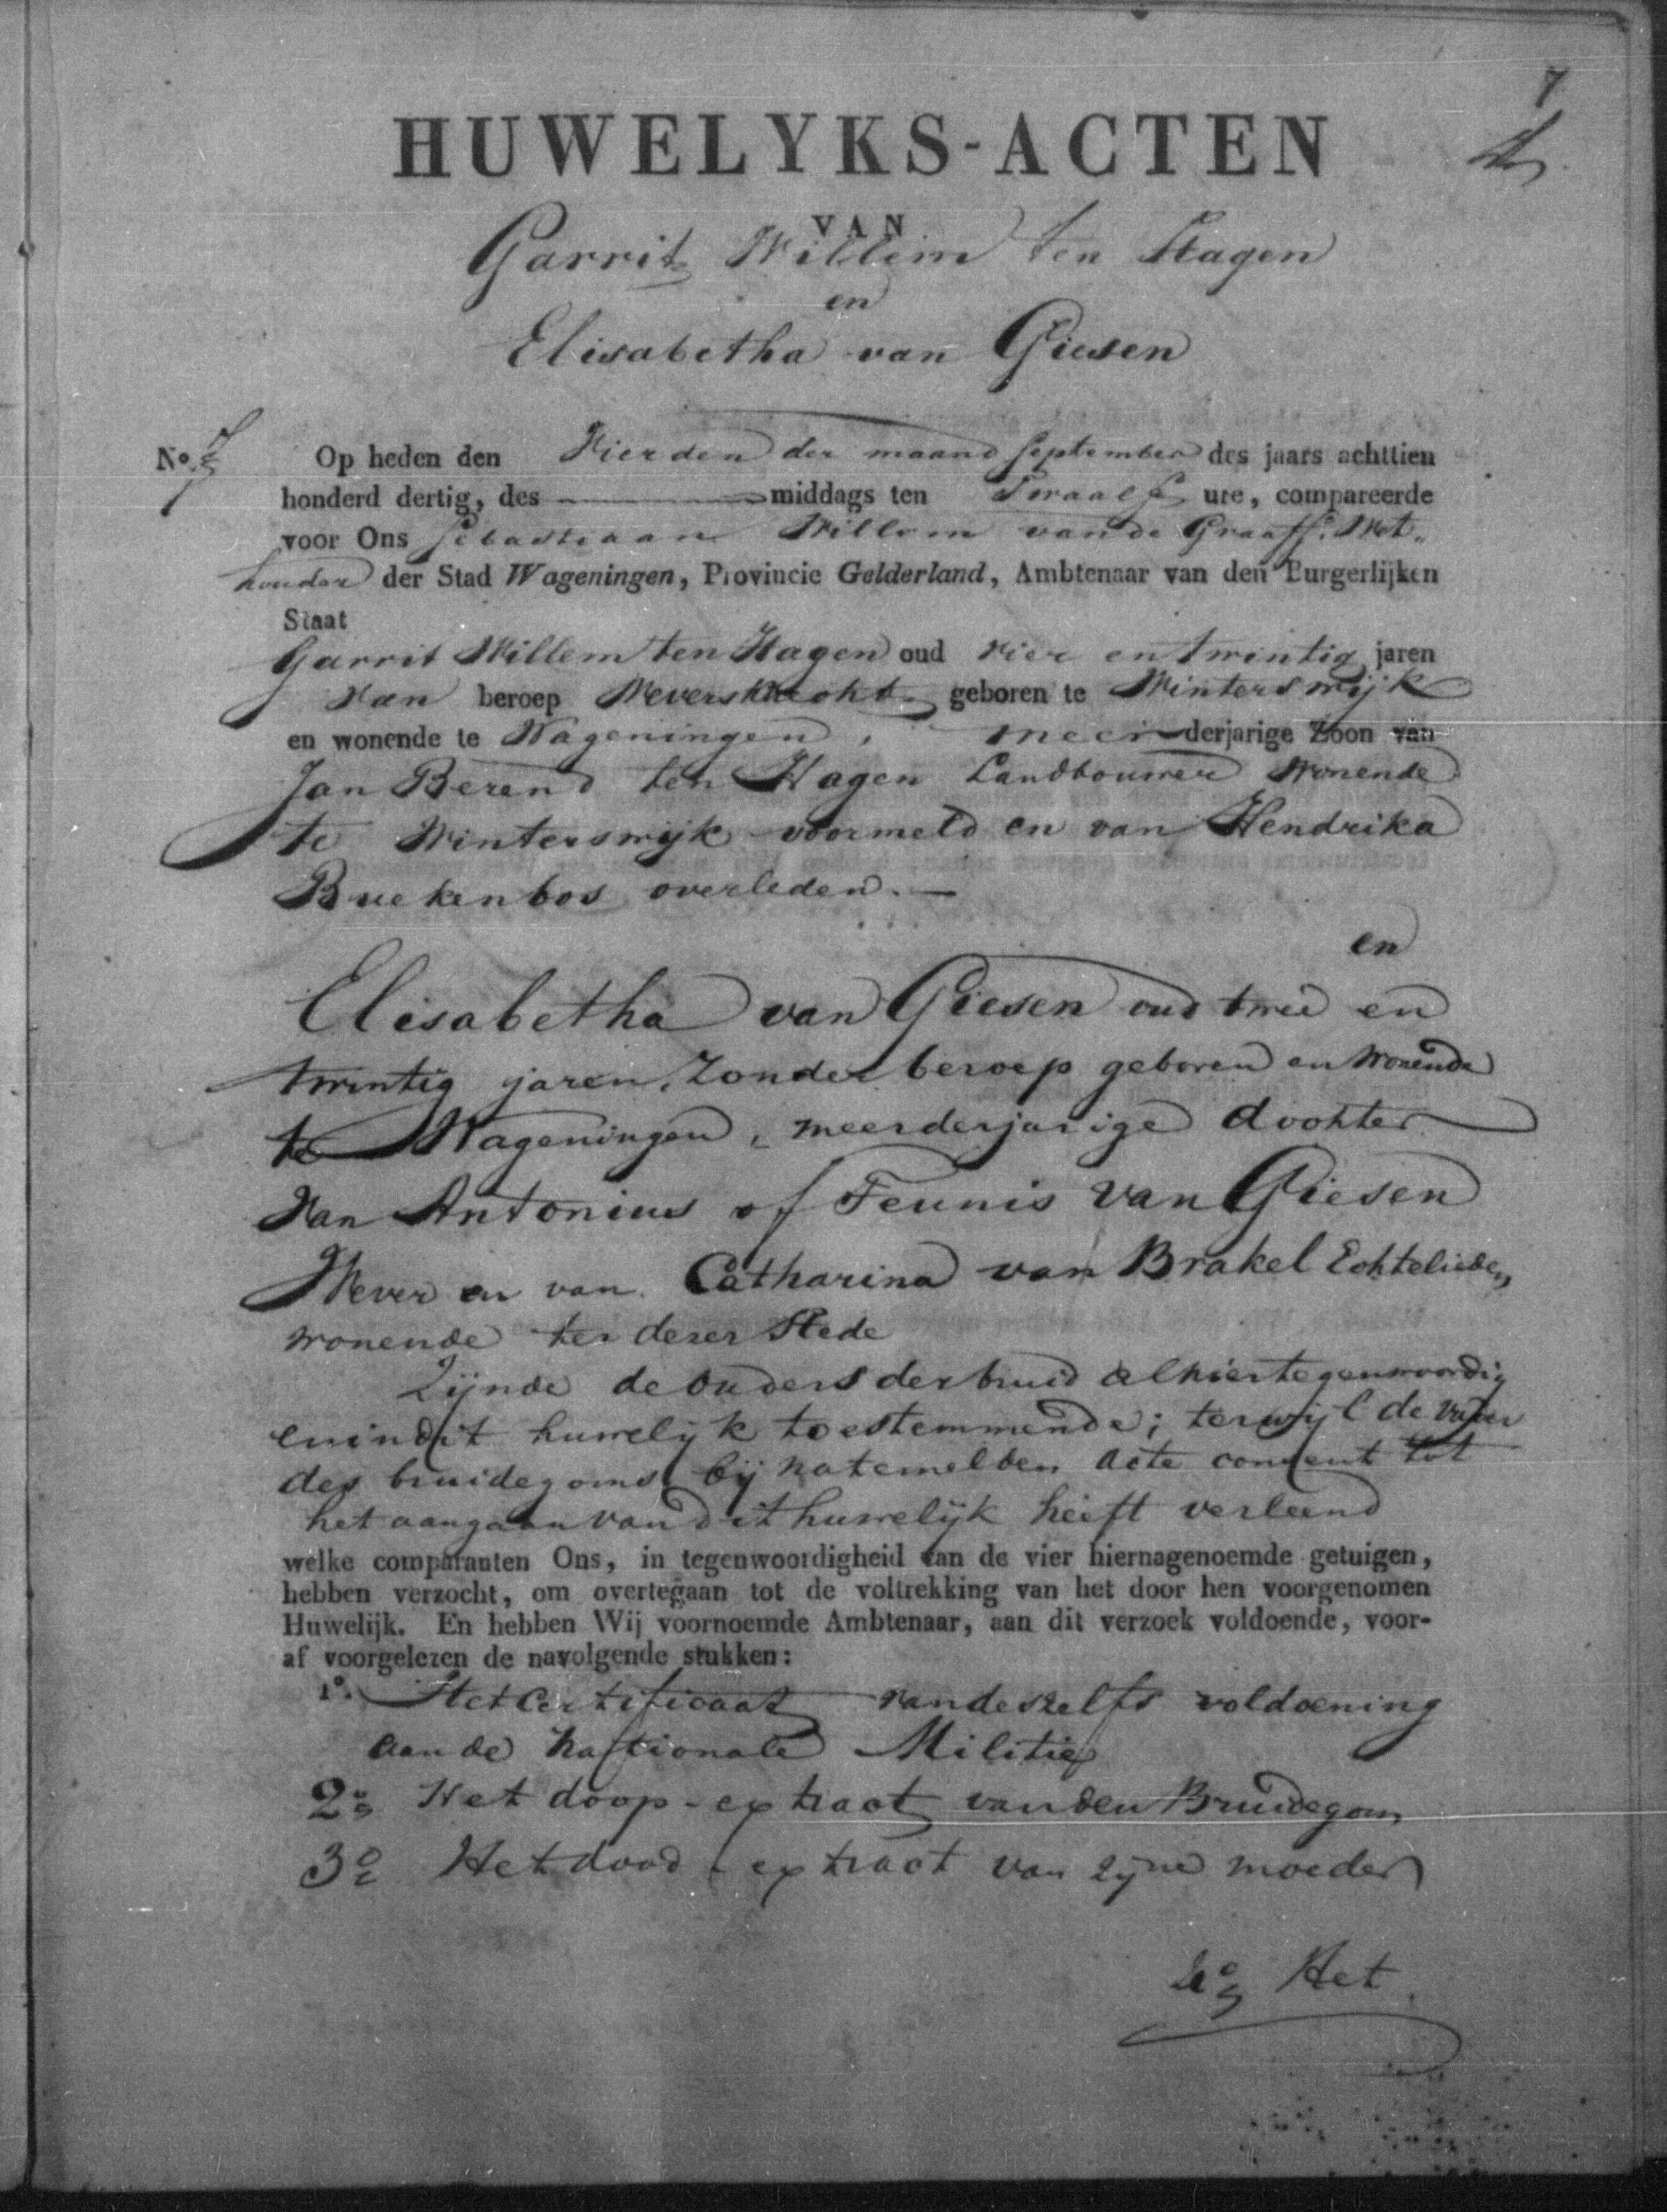 7
HUWELYKS-ACTEN
VAN
Garrit Willem ten Hagen
en
Elisabetha van Giesen
No. 7 Op heden den Vierden der maand September des jaars achttien
honderd dertig, des middags ten Twaalf ure, compareerde
voor Ons Sebastiaan Willem van de Graaff. Wet„
houder der Stad Wageningen, Provincie Gelderland, Ambtenaar van den Burgerlijken
Staat
Garrit Willem ten Hagen oud vier en twintig jaren
Van beroep Weversknecht geboren te Winterswijk
en wonende te Wageningen, meerderjarige Zoon van
Jan Berend ten Hagen Landbouwer Wonende
te Winterswijk voormeld en van Hendrika
Buekenbos overleden. —
en
Elisabetha van Giesen oud twee en
twintig jaren, Zonder beroep geboren en Wonende
te Wageningen, meerderjarige dochter
Van Antonius of Teunis van Giesen
Wever en van Catharina van Brakel Echtelieden
wonende ter dezer Stede
Zijnde de ouders der bruid alhier tegenwoordig
en in dit huwelijk toestemmende; terwijl de vader
des bruidegoms bij natemelden acte consent tot
het aangaan van dit huwelijk heeft verleend
welke comparanten Ons, in tegenwoordigheid van de vier hiernagenoemde getuigen,
hebben verzocht, om overtegaan tot de voltrekking van het door hen voorgenomen
Huwelijk. En hebben Wij voornoemde Ambtenaar, aan dit verzoek voldoende, voor-
af voorgelezen de navolgende stukken:
1o. Het Certificaat van deszelfs voldoening
aan de Nationale Militie
2o Het doop-extract van den Bruidegom
3o Het dood-extract van zijne moeder
4o Het